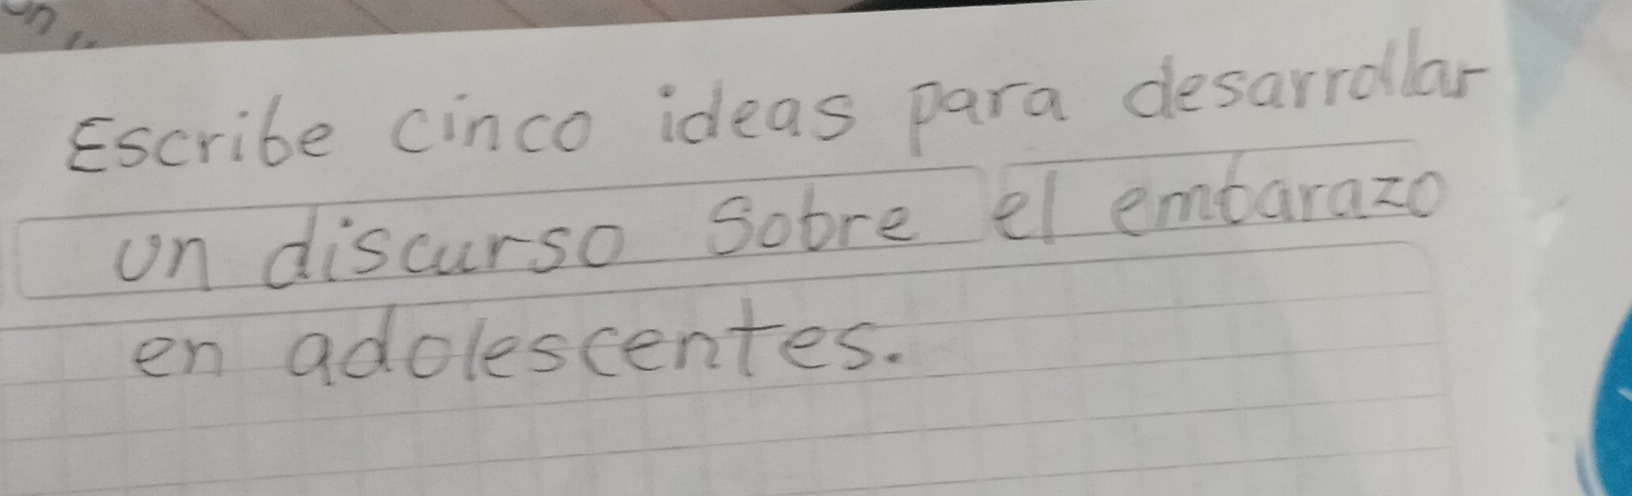 Escribe cinco ideas para desarrollar
un discurso sobre el embarazo
en adolescentes.